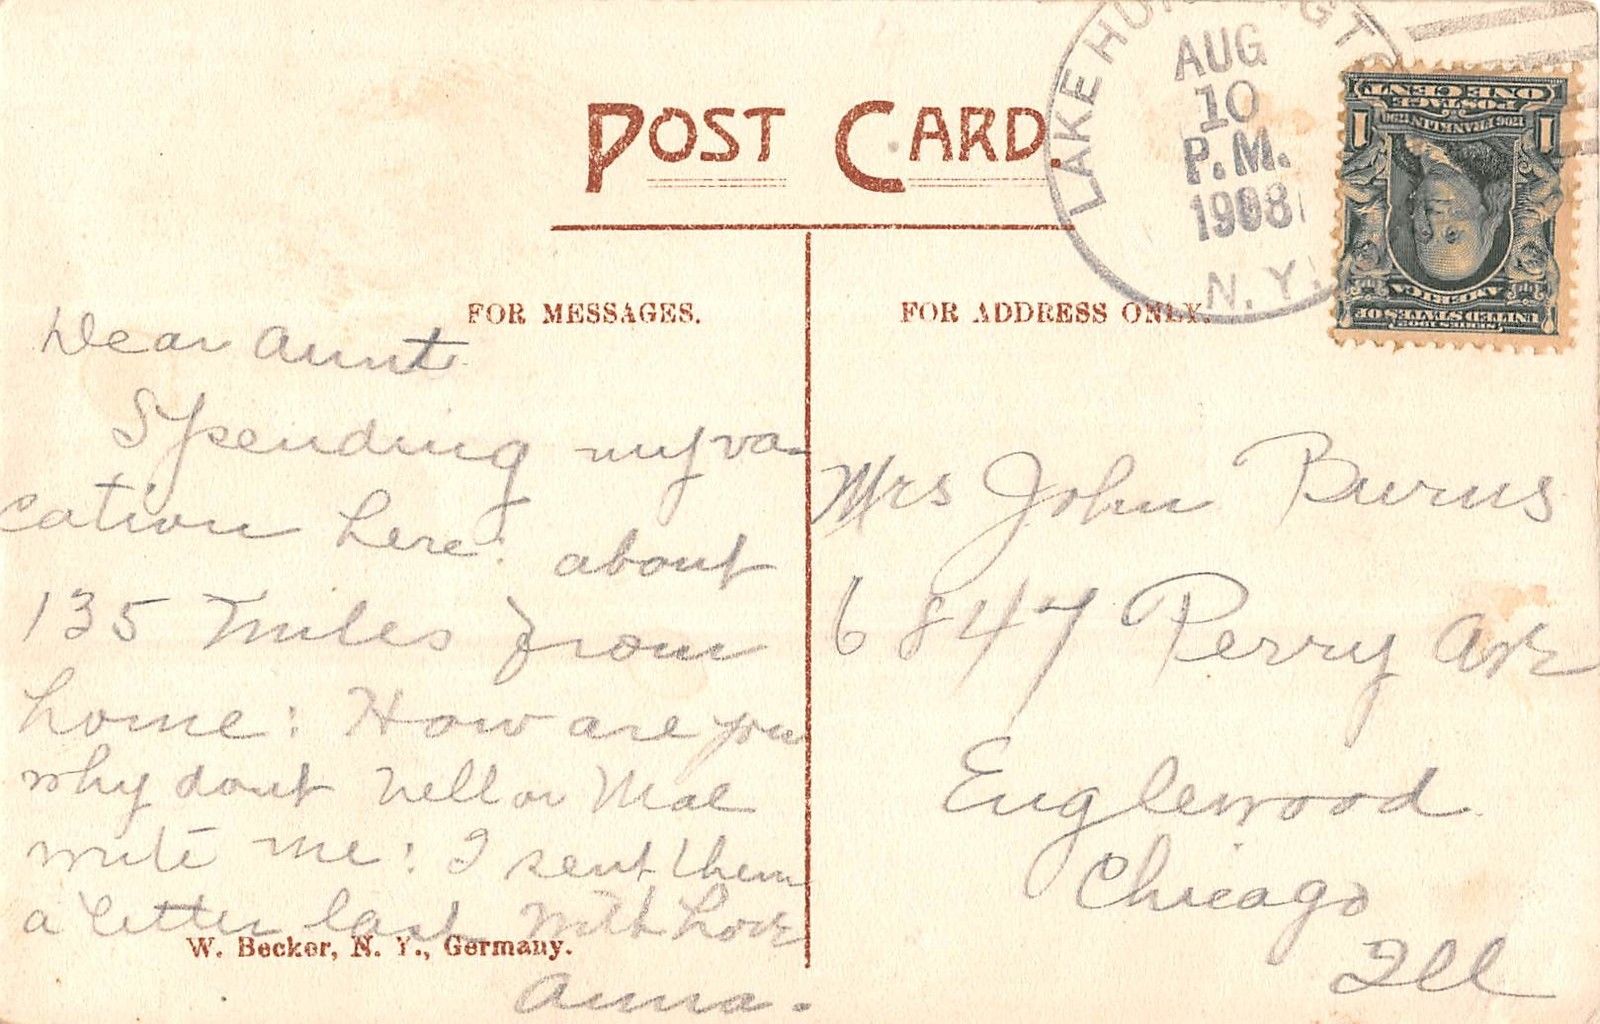 POST CARD.
LAKE HUNTINGTO
AUG
10
P.M.
1908
N.Y.
ONE CENT
POSTAGE
1706 FRANKLIN 1790
1 1
AMERICA
UNITED STATES OF
SERIES 1902
FOR MESSAGES.
FOR ADDRESS ONLY.
Dear Aunt
Spending my va-
cation here: about
135 miles from
home: How are you
why dont Nell or Mae
write me: I sent them
a letter last With Love
Anna.
Mrs John Burns
6847 Perry Ave
Englewood
Chicago
Ill
W. Becker, N. Y., Germany.